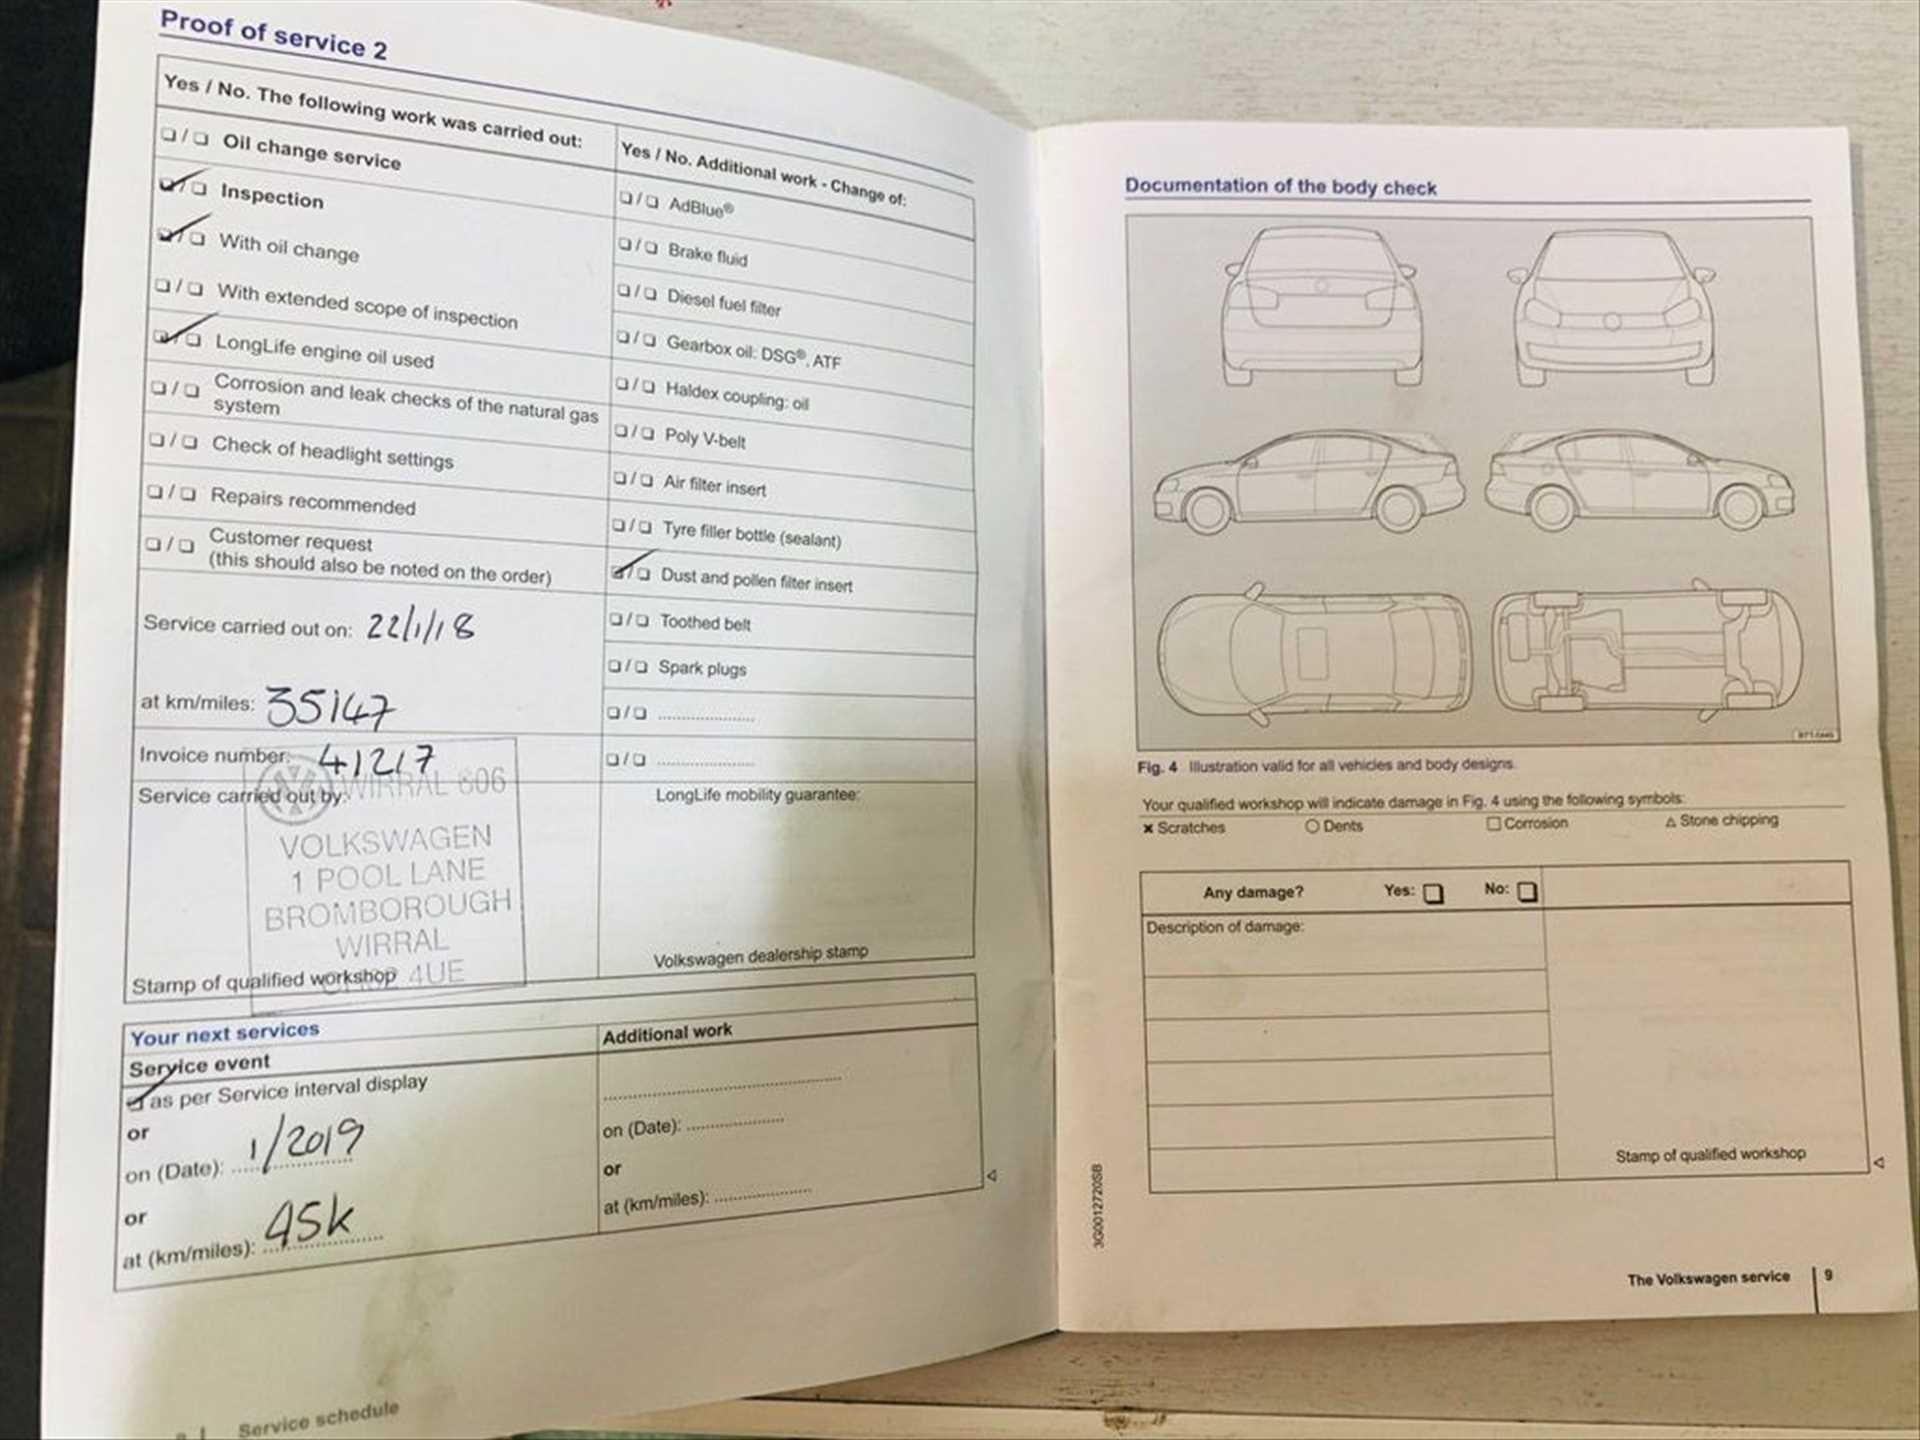 Proof of service 2
Yes / No. The following work was carried out:
Oil change service
Inspection
With oil change
With extended scope of inspection
LongLife engine oil used
Corrosion and leak checks of the natural gas
system
Check of headlight settings
Repairs recommended
Customer request
(this should also be noted on the order)
Service carried out on: 22/1/18
at km/miles: 35147
Invoice number: 41217
Service carried out by:
WIRRAL 606
VOLKSWAGEN
1 POOL LANE
BROMBOROUGH
WIRRAL
4UE
Stamp of qualified workshop
Yes / No. Additional work - Change of:
AdBlue®
Brake fluid
Diesel fuel filter
Gearbox oil: DSG®, ATF
Haldex coupling: oil
Poly V-belt
Air filter insert
Tyre filler bottle (sealant)
Dust and pollen filter insert
Toothed belt
Spark plugs
LongLife mobility guarantee:
Volkswagen dealership stamp
Your next services
Service event
as per Service interval display
or
on (Date): 1/2019
or
at (km/miles): 45k
Additional work
on (Date):
or
at (km/miles):
Service schedule
Documentation of the body check
Fig. 4 Illustration valid for all vehicles and body designs.
Your qualified workshop will indicate damage in Fig. 4 using the following symbols:
× Scratches ○ Dents □ Corrosion △ Stone chipping
Any damage? Yes: No:
Description of damage:
Stamp of qualified workshop
3G0012720SB
The Volkswagen service 9